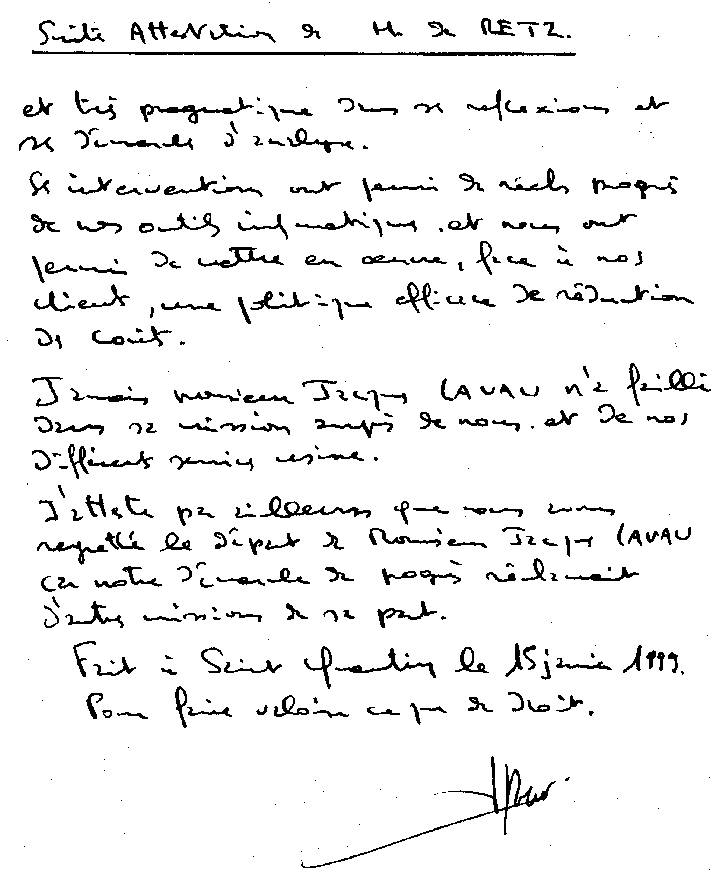 Suite Attestation de M. de RETZ.
et très pragmatique dans ses reflexions et
ses demandes d'analyse.
Ses interventions ont permis de réels progrès
de nos outils informatiques, et nous ont
permis de mettre en oeuvre, face à nos
clients, une politique efficace de réduction
des coûts.
Jamais monsieur Jacques LAVAU n'a failli
dans sa mission auprès de nous, et de nos
différents services usine.
J'atteste par ailleurs que nous avons
regretté le départ de Monsieur Jacques LAVAU
car notre demande de progrès réclamait
d'autres missions de sa part.
Fait à Saint Quentin le 15 janvier 1999.
Pour faire valoir ce que de droit.